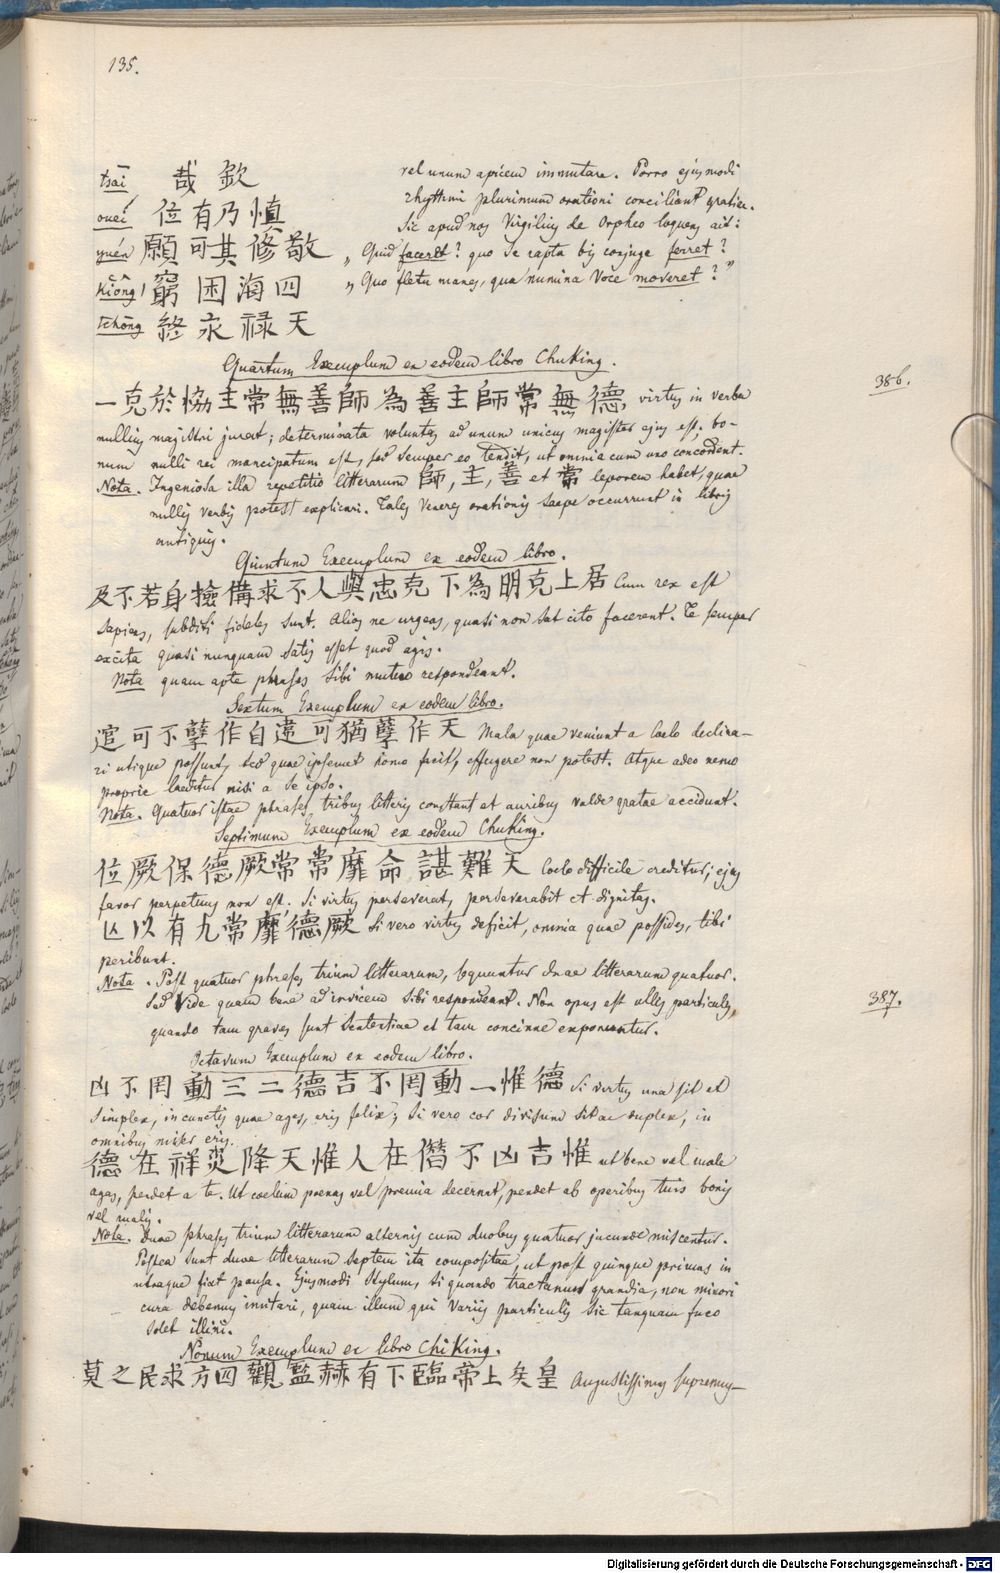 135.
tsāi 哉 欽
ouéi 位有乃慎
yuén 願可其修敬
Kiông 窮困海四
tchōng 終永禄天
vel unum apicem immutare. Porro ejusmodi
rhythmi plurimum orationi conciliant gratiae.
Sic apud nos Virgilius de Orpheo loquens ait:
„ Quid faceret? quo se rapta bis conjuge ferret?
„ Quo fletu manes, qua numina voce moveret?”
Quartum Exemplum ex eodem libro Chu King.
386.
一克於恊主常無善師為善主師常無德 virtus in verba
nullius magistri jurat; determinata voluntas ad unum unicus magister ejus est; bo-
num nulli rei mancipatum est, sed semper eo tendit, ut omnia cum uno concordent.
Nota. Ingeniosa illa repetitio litterarum 師, 主, 善 et 常 leporem habet, quae
nullis verbis potest explicari. Tales Veneres orationis saepe occurrunt in libris
antiquis.
Quintum Exemplum ex eodem libro.
及不若身撿備求不人與忠克下為明克上居 Cum rex est
sapiens, subditi fideles sunt. Alios ne urgeas, quasi non sat cito facerent. Te semper
excita quasi nunquam satis esset quod agis.
Nota quam apte phrases sibi mutuo respondeant.
Sextum Exemplum ex eodem libro.
逭可不孽作自違可猶孽作天 Mala quae veniunt a Caelo declina-
ri utique possunt, sed quae ipsemet homo facit, effugere non potest. Atque adeo nemo
proprie laeditur nisi a se ipso.
Nota. Quatuor istae phrases tribus litteris constant et auribus valde gratae accidunt.
Septimum Exemplum ex eodem Chu King.
位厥保德厥常常靡命諶難天 Coelo difficile creditur; ejus
favor perpetuus non est. Si virtus perseverat, perseverabit et dignitas.
亾以有九常靡德厥 Si vero virtus deficit, omnia quae possides, tibi
peribunt.
Nota. Post quatuor phrases trium litterarum, sequuntur duae litterarum quatuor.
Sed vide quam bene ad invicem sibi respondeant. Non opus est ullis particulis,
387.
quando tam graves sunt Sententiae et tam concinne exponuntur.
Octavum Exemplum ex eodem libro.
凶不罔動三二德吉不罔動一惟德 Si virtus una sit et
simplex, in cunctis quae ages, eris felix; si vero cor divisum sit ac duplex, in
omnibus miser eris.
德在祥災降天惟人在僭不凶吉惟 ut bene vel male
agas, pendet a te. Ut coelum poenas vel praemia decernat, pendet ab operibus tuis bonis
vel malis.
Nota. Duae phrases trium litterarum alternis cum duobus quatuor jucunde miscentur.
Postea sunt duae litterarum septem ita compositae, ut post quinque primas in
utraque fiat pausa. Ejusmodi Stylum, si quando tractamus grandia, non minori
cura debemus imitari, quam illum qui variis particulis sic tanquam fuco
solet illini.
Nonum Exemplum ex libro Chi King.
莫之民求方四觀監赫有下臨帝上矣皇 Augustissimus supremus-
Digitalisierung gefördert durch die Deutsche Forschungsgemeinschaft - DFG